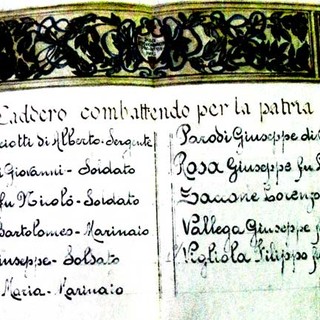 Caddero combattendo per la patria
ciotti di Alberto - Sergente
Giovanni - Soldato
fu Nicolò - Soldato
Bartolomeo - Marinaio
iuseppe - Soldato
Maria - Marinaio
Parodi Giuseppe di
Rosa Giuseppe fu
Zacone Lorenzo
Vallega Giuseppe
Vigliola Filippo fu